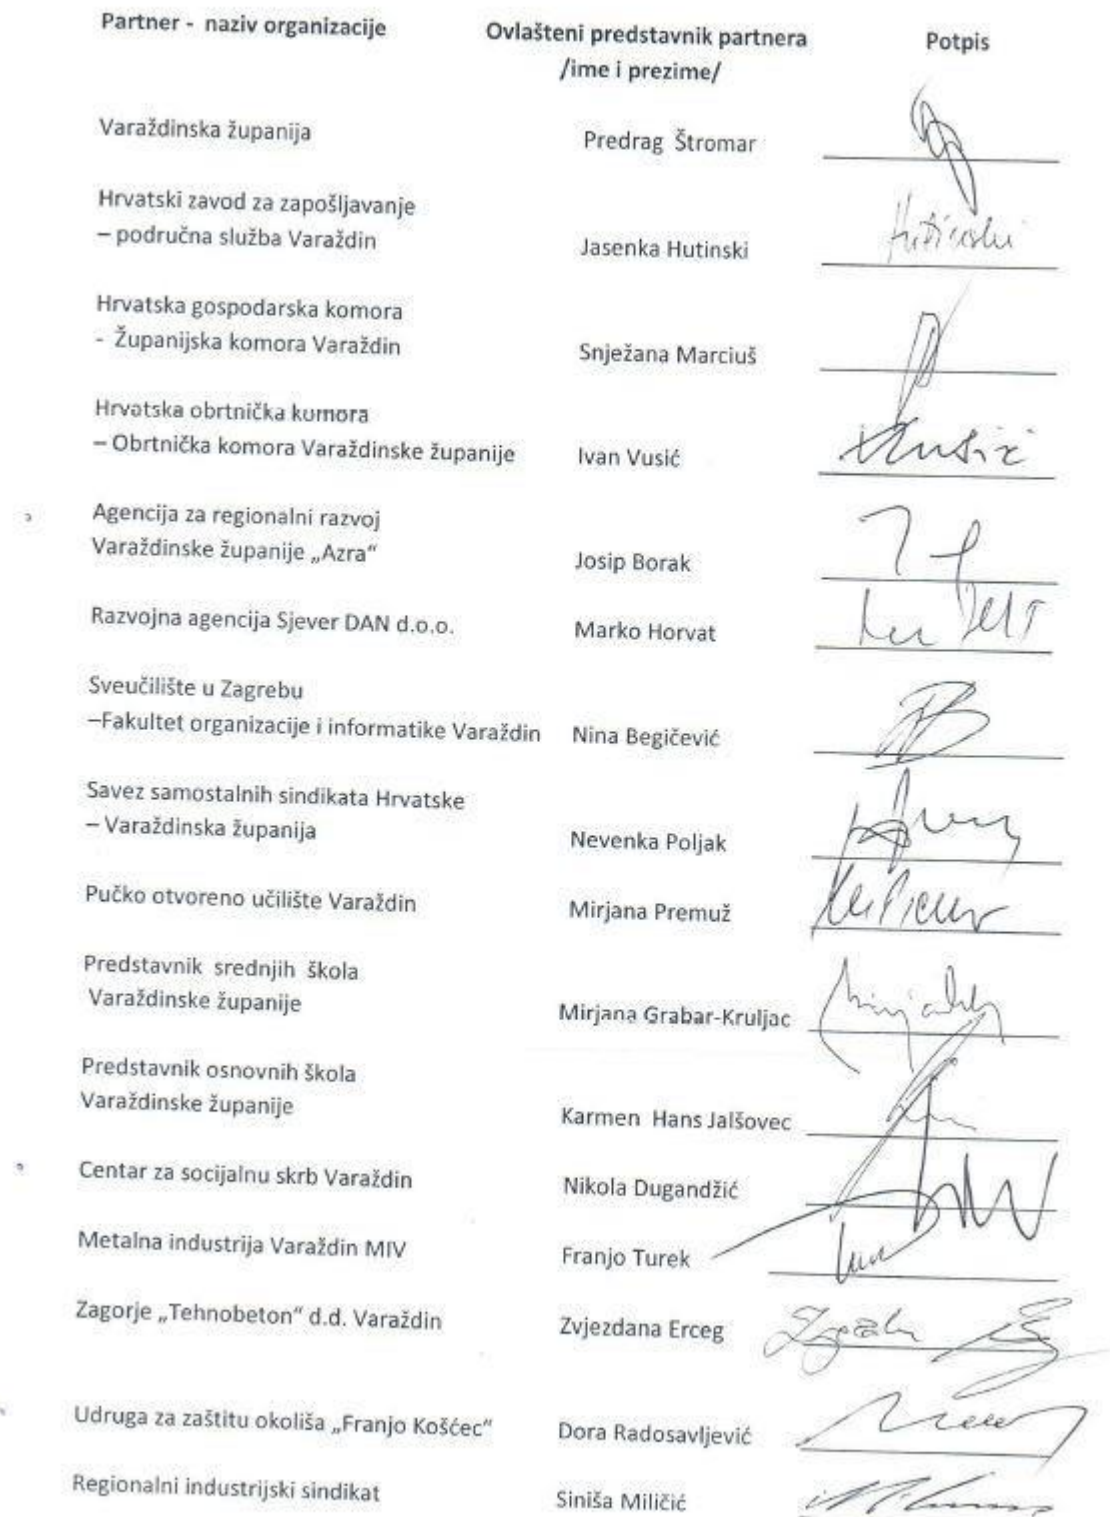 Partner - naziv organizacije
Ovlašteni predstavnik partnera
/ime i prezime/
Potpis
Varaždinska županija
Predrag Štromar
Hrvatski zavod za zapošljavanje
– područna služba Varaždin
Jasenka Hutinski
Hutinski
Hrvatska gospodarska komora
- Županijska komora Varaždin
Snježana Marciuš
Hrvatska obrtnička komora
– Obrtnička komora Varaždinske županije
Ivan Vusić
Vusić
Agencija za regionalni razvoj
Varaždinske županije „Azra“
Josip Borak
Razvojna agencija Sjever DAN d.o.o.
Marko Horvat
Sveučilište u Zagrebu
–Fakultet organizacije i informatike Varaždin
Nina Begičević
Savez samostalnih sindikata Hrvatske
– Varaždinska županija
Nevenka Poljak
Pučko otvoreno učilište Varaždin
Mirjana Premuž
Predstavnik srednjih škola
Varaždinske županije
Mirjana Grabar-Kruljac
Predstavnik osnovnih škola
Varaždinske županije
Karmen Hans Jalšovec
Centar za socijalnu skrb Varaždin
Nikola Dugandžić
Metalna industrija Varaždin MIV
Franjo Turek
Zagorje „Tehnobeton“ d.d. Varaždin
Zvjezdana Erceg
Udruga za zaštitu okoliša „Franjo Košćec“
Dora Radosavljević
Regionalni industrijski sindikat
Siniša Miličić